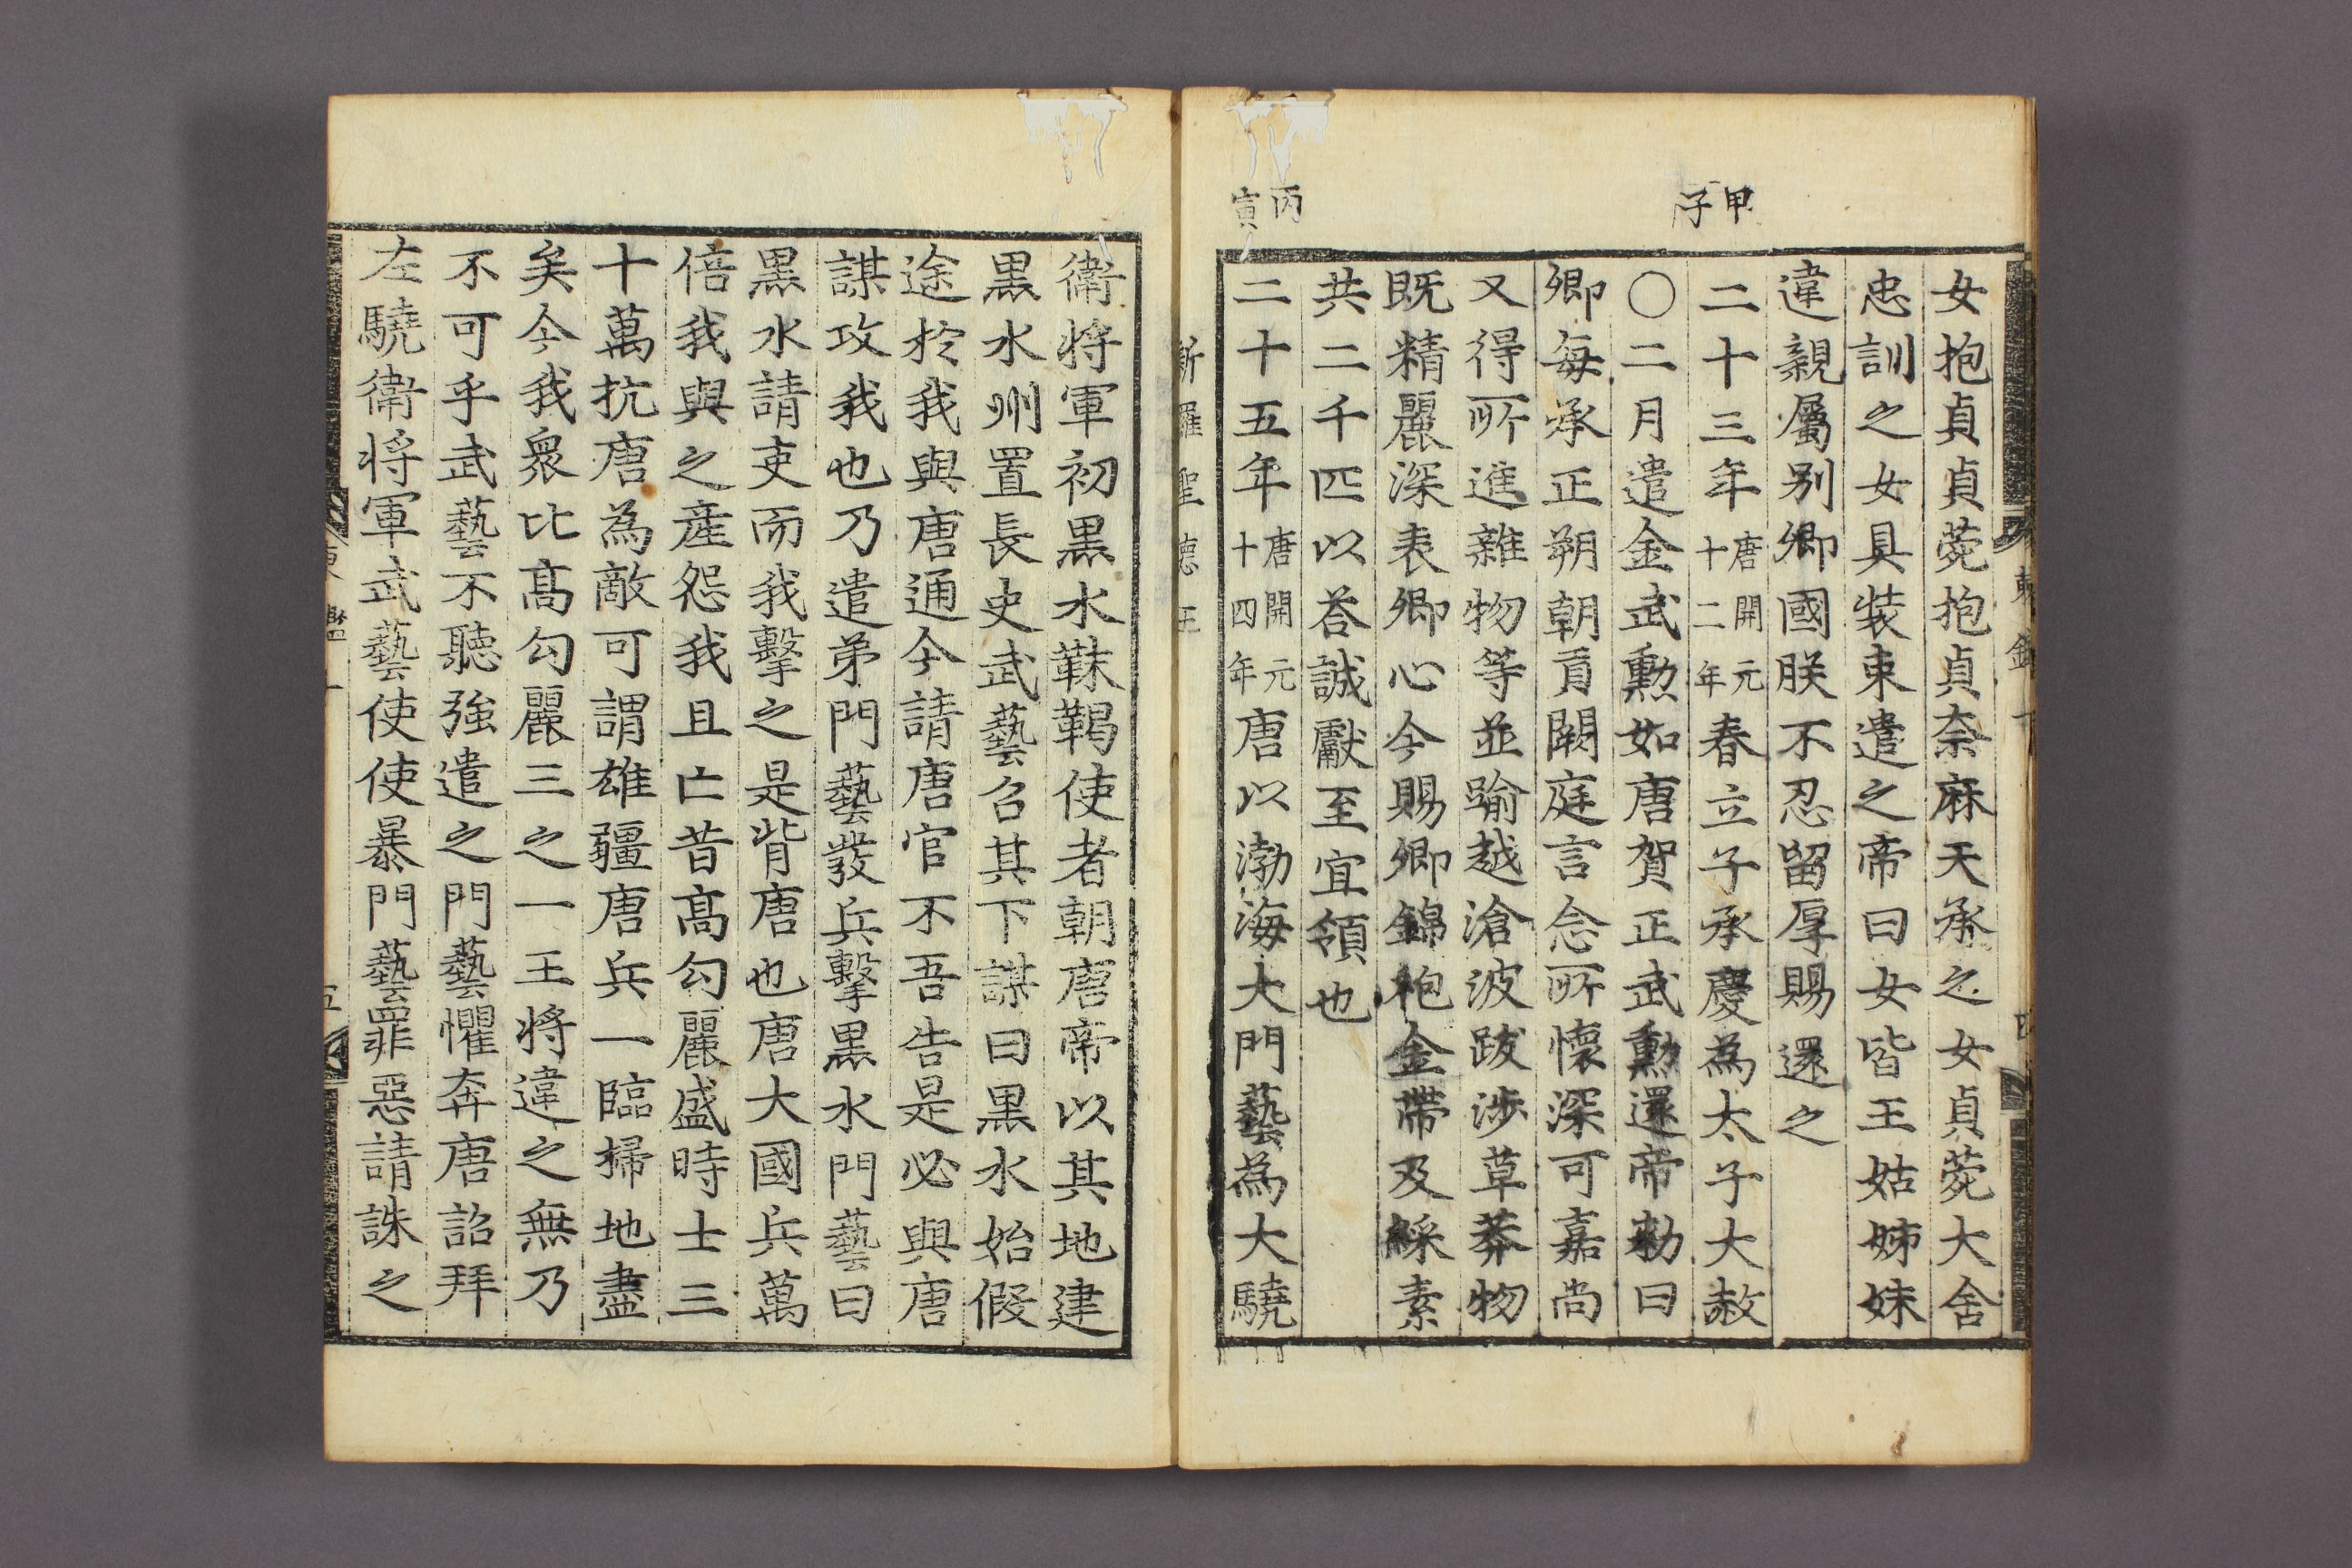 甲子
丙寅
女抱貞貞菀抱貞奈麻天承之女貞菀大舍
忠訓之女具装束遣之帝曰女皆王姑姊妹
違親屬别卿國朕不忍留厚賜還之
二十三年唐開元十二年春立子承慶為太子大赦
〇二月遣金武勲如唐賀正武勲還帝勅曰
卿每承正朔朝貢闕庭言念所懷深可嘉尚
又得所進雜物等並踰越滄波跋涉草莽物
既精麗深表卿心今賜卿錦袍金帶及綵素
共二千匹以荅誠獻至宜領也
二十五年唐開元十四年唐以渤海大門藝為大驍
新羅聖德王
衛将軍初黒水靺鞨使者朝唐帝以其地建
黒水州置長史武藝召其下謀曰黒水始假
途於我與唐通今請唐官不吾告是必與唐
謀攻我也乃遣弟門藝發兵擊黒水門藝曰
黒水請吏而我擊之是背唐也唐大國兵萬
倍我與之產怨我且亡昔髙勾麗盛時士三
十萬抗唐為敵可謂雄疆唐兵一臨掃地盡
矣今我衆比髙勾麗三之一王将違之無乃
不可乎武藝不聽強遣之門藝懼奔唐詔拜
左驍衛将軍武藝使使暴門藝罪惡請誅之